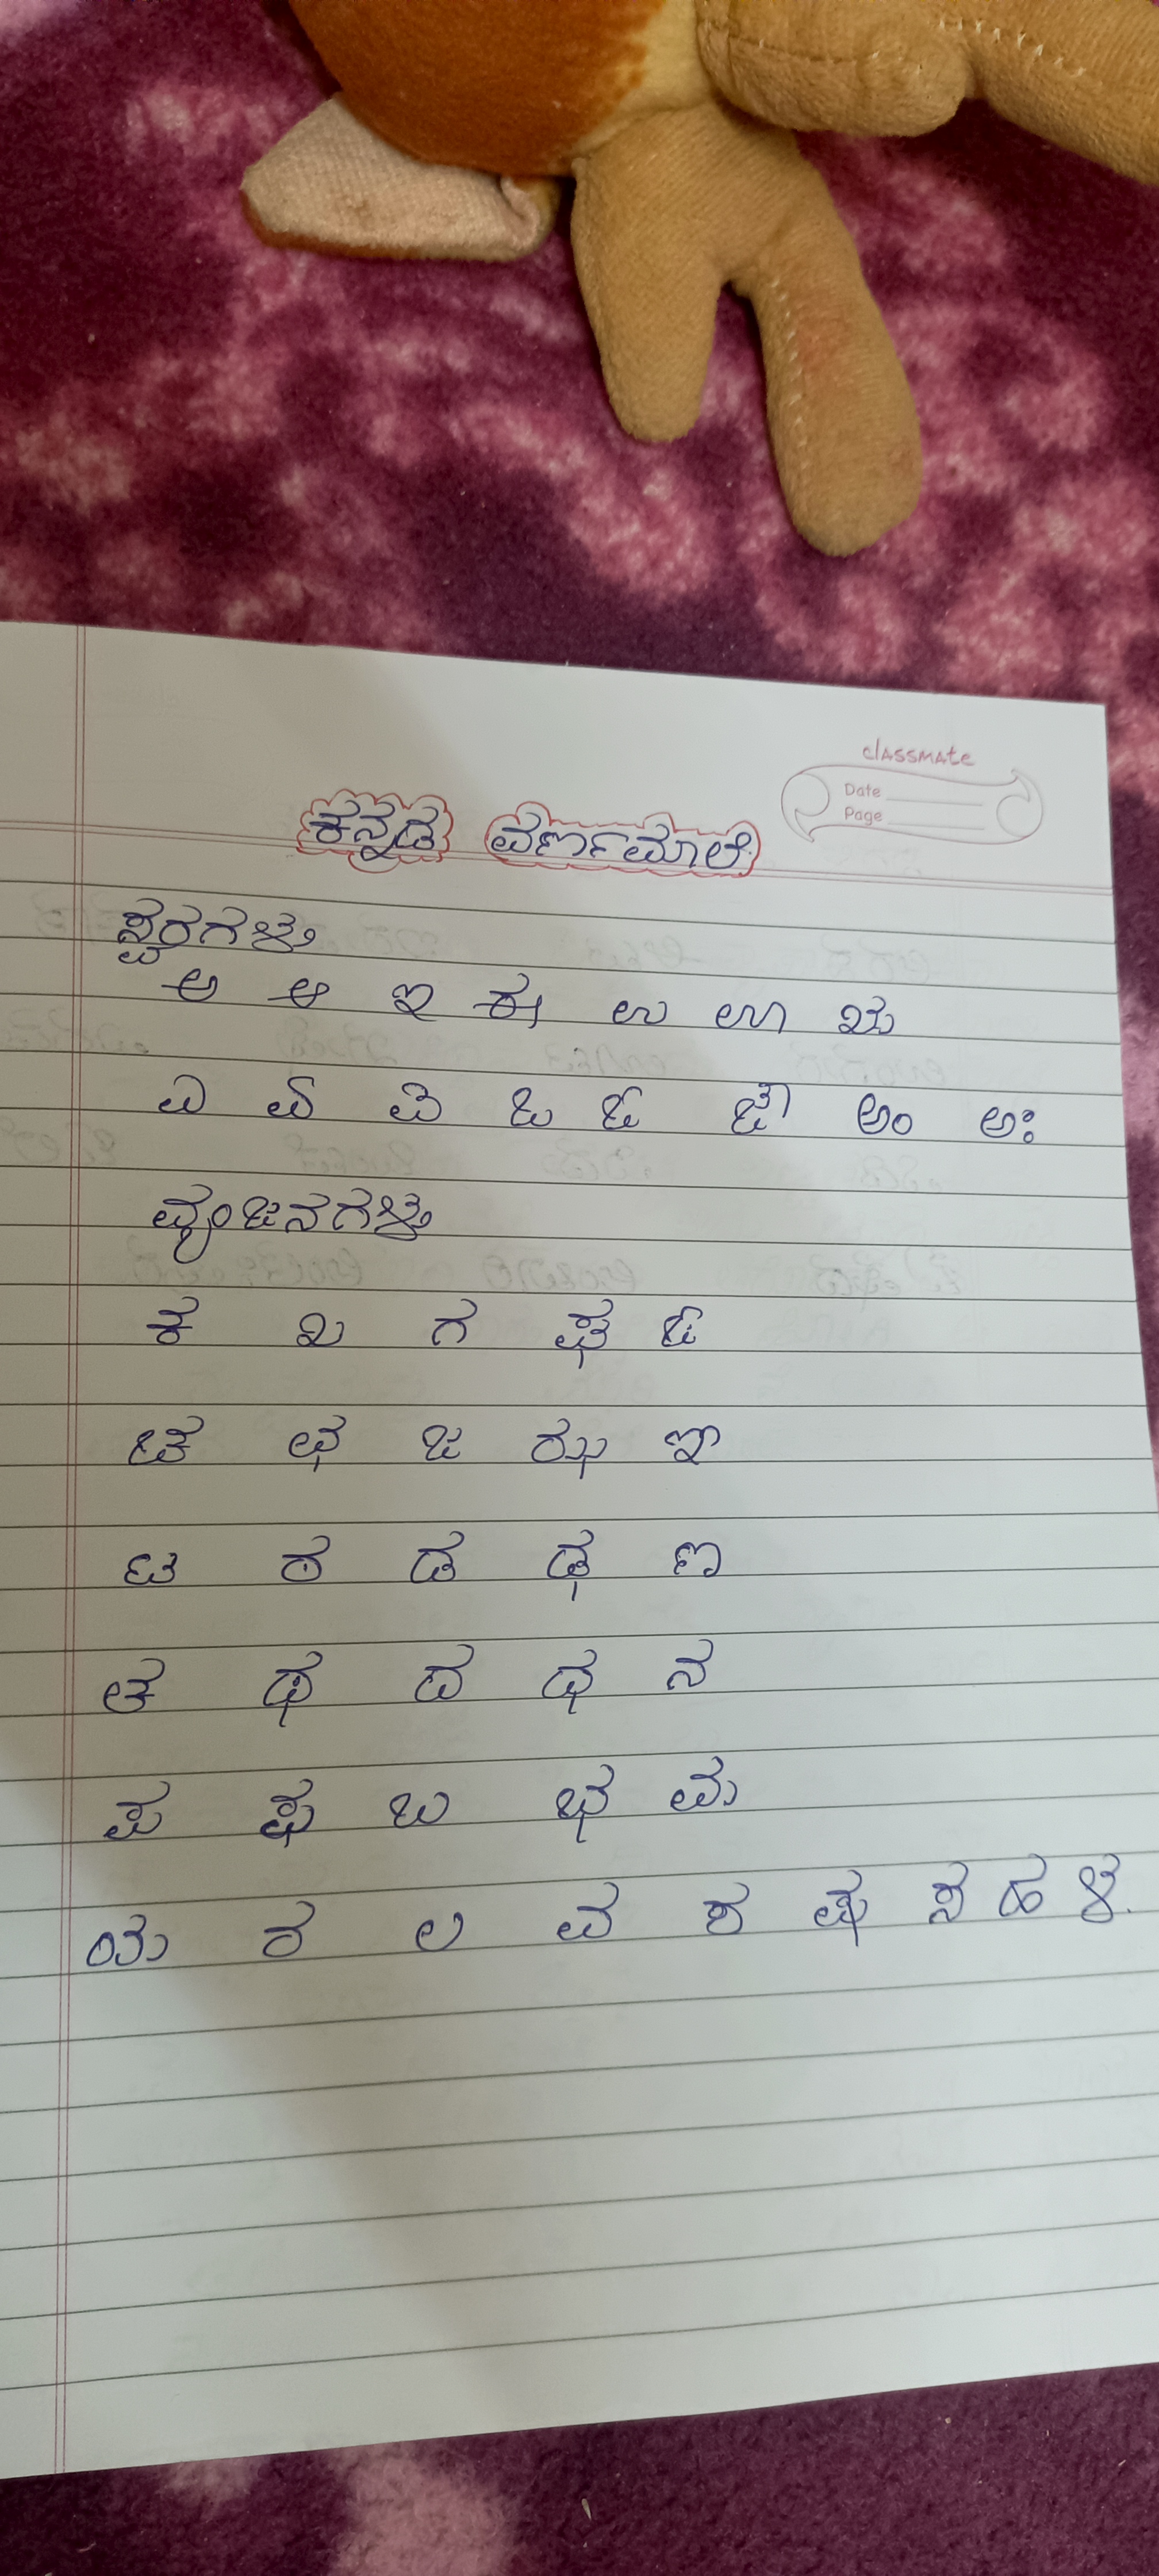 classmate
Date
Page
ಕನ್ನಡ ವರ್ಣಮಾಲೆ
ಸ್ವರಗಳು
ಅ ಆ ಇ ಈ ಉ ಊ ಋ
ಎ ಏ ಐ ಒ ಓ ಔ ಅಂ ಅಃ
ವ್ಯಂಜನಗಳು
ಕ ಖ ಗ ಘ ಙ
ಚ ಛ ಜ ಝ ಞ
ಟ ಠ ಡ ಢ ಣ
ತ ಥ ದ ಧ ನ
ಪ ಫ ಬ ಭ ಮ
ಯ ರ ಲ ವ ಶ ಷ ಸ ಹ ಳ.